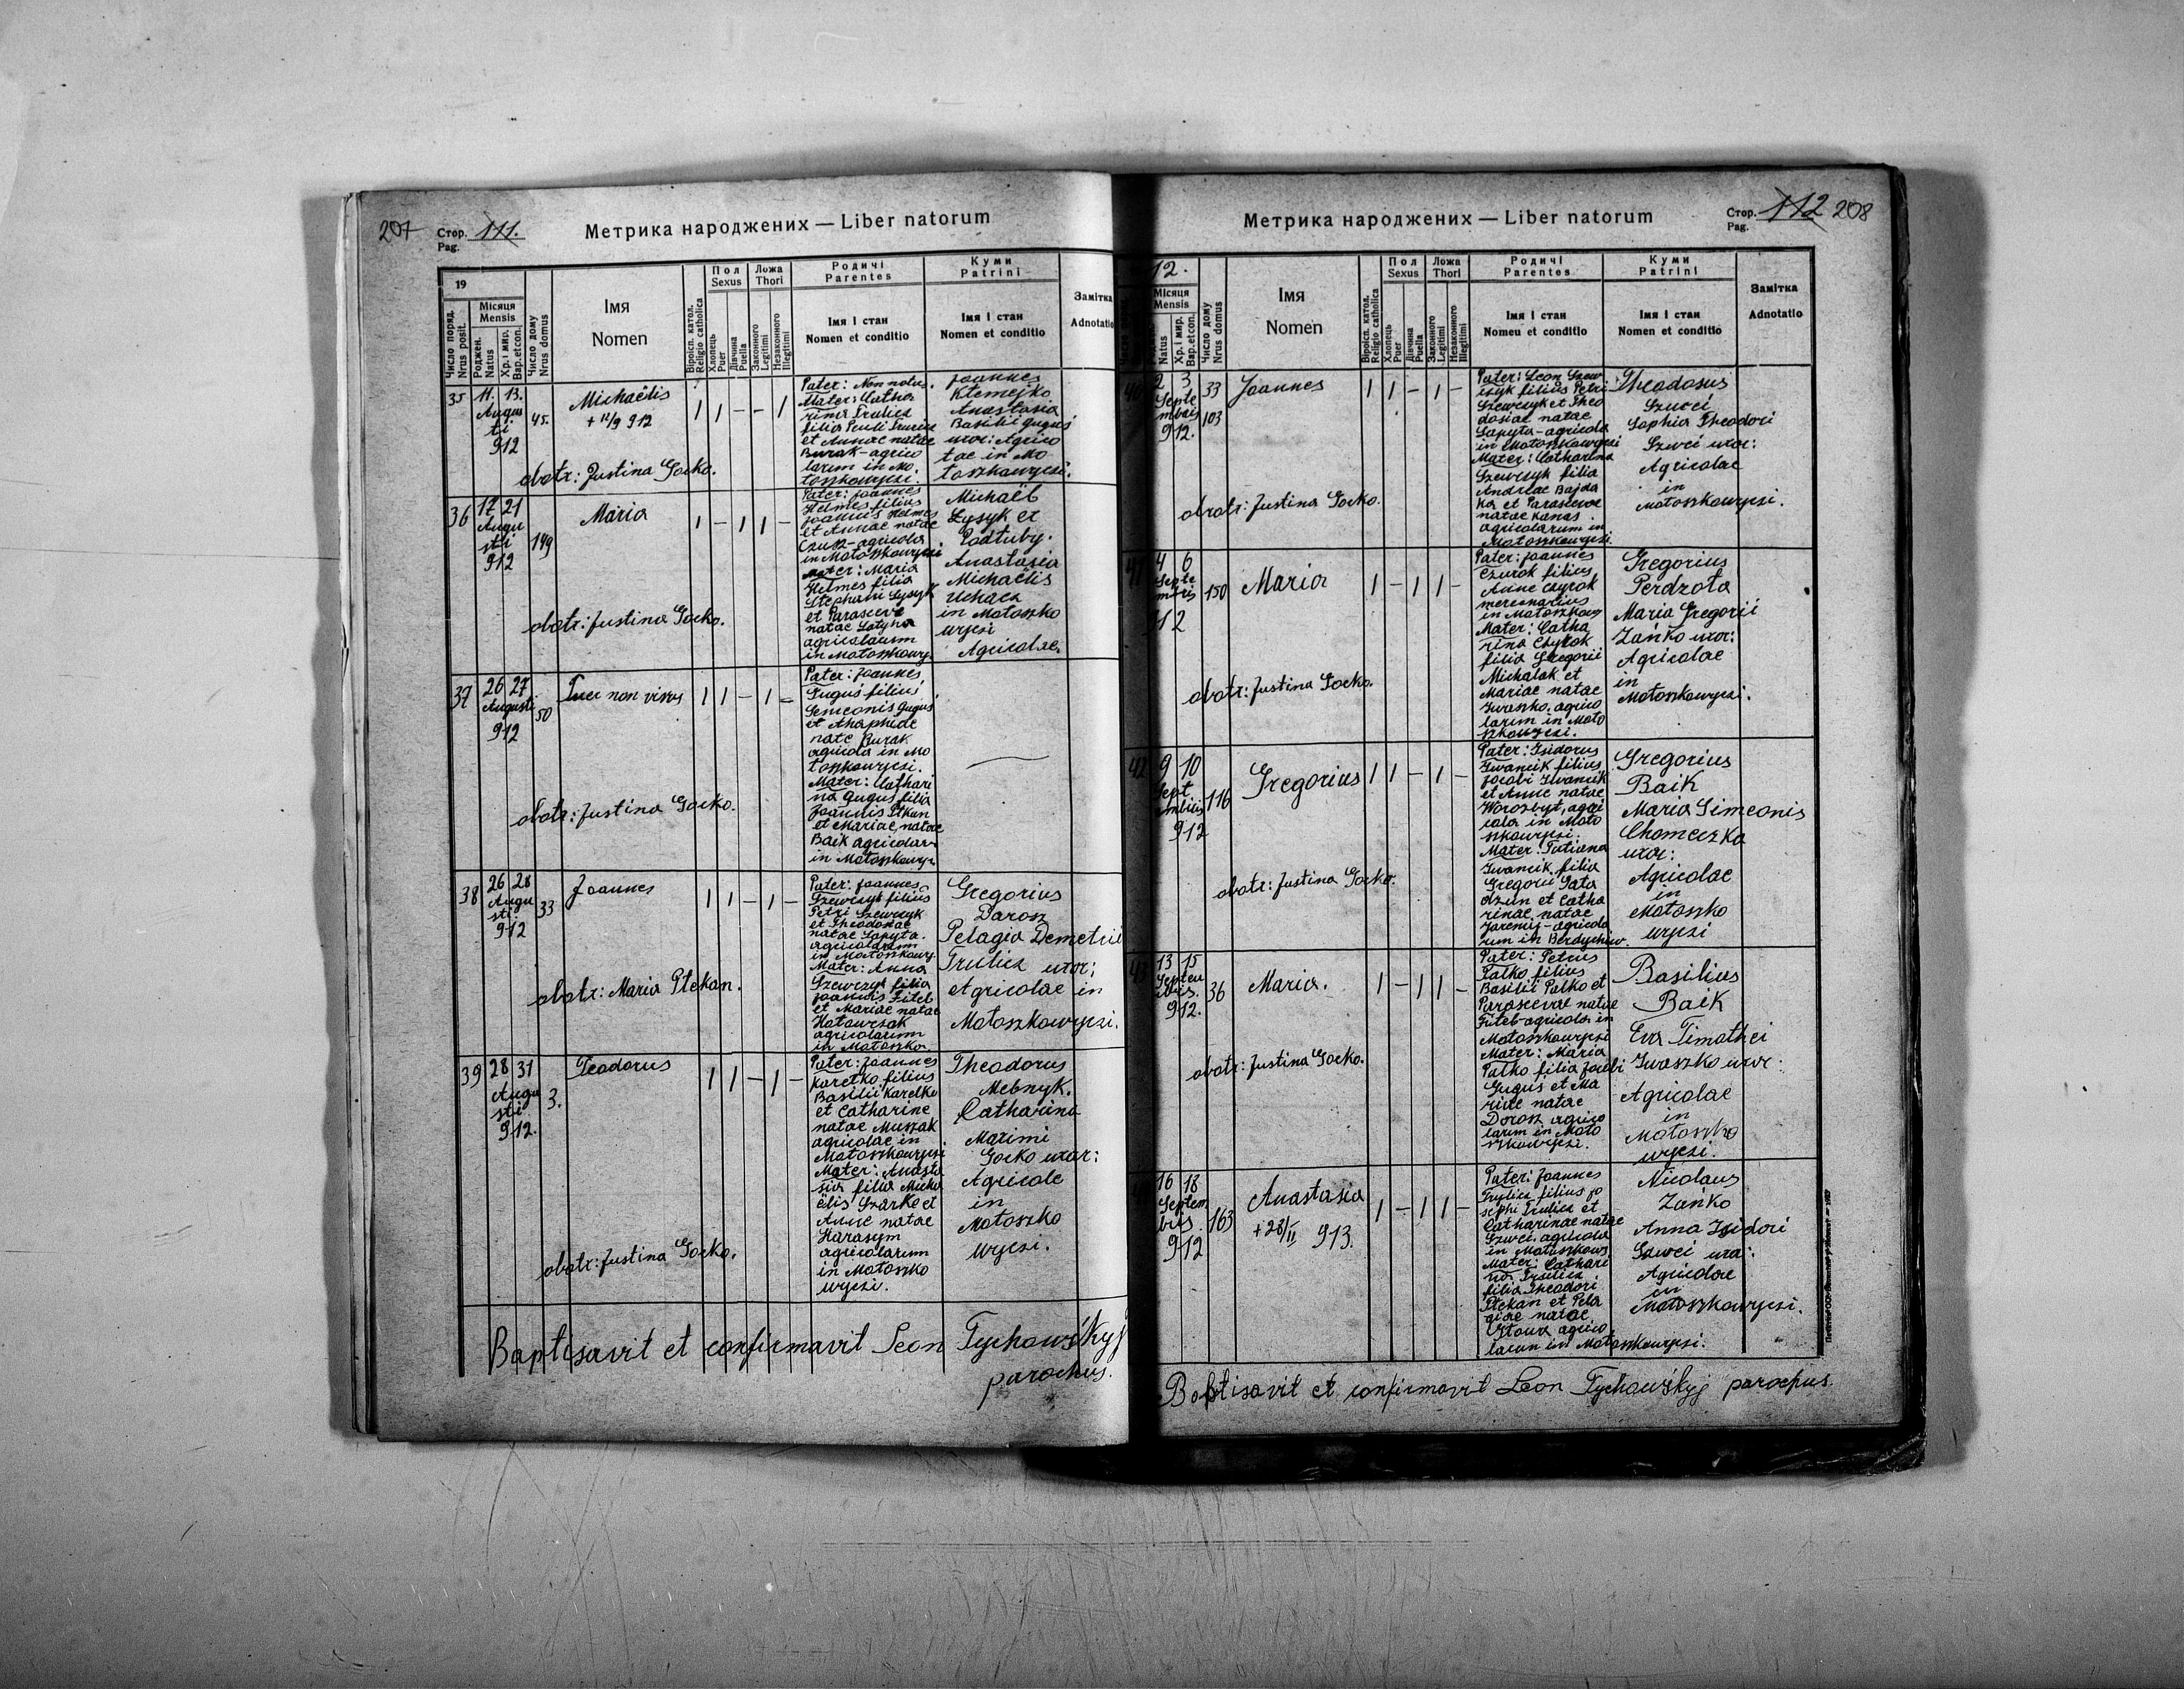 207
Стор. 111.
Pag.
Метрика народжених — Liber natorum
19
Число поряд.
Nrus posit.
Місяця
Mensis
Роджен.
Natus
Хр. і мир.
Bap. et con.
Число дому
Nrus domus
Імя
Nomen
Віроісп. катол.
Religio catholica
Пол
Sexus
Хлопець
Puer
Дівчина
Puella
Ложа
Thori
Законного
Legitimi
Незаконного
Illegitimi
Родичі
Parentes
Імя і стан
Nomen et conditio
Куми
Patrini
Імя і стан
Nomen et conditio
Замітка
Adnotatio
35
11. 13.
Augus
ti
912
45.
Michaëlis
+ 12/9 912
1 1 – – 1
Pater: Non notus.
Mater: Catha
rina Trulica
filia Pauli
et Annae natae
Burak – agrico
larum in Mo.
toszkowyczi.
Joannes
Klemejko
Anastasia
Basilii Guguś
uxor: Agrico
lae in Mo
toszkowyczi.
obstr: Justina Gocko.
36
17 21
Augu
sti
912
149
Maria
1 – 1 1 –
Pater: Joannes
Helmes filius
Joannis Helmes
et Annae natae
agricola
in Motoszkowyczi
Mater: Maria
Helmes filia
Stephani Łysyk
et Parasceve
natae
agricolarum
in Motoszkowy.
Michaël
Łysyk et
Anastasia
Michaëlis
in Motoszko
wyczi
Agricolae.
obstr: Justina Gocko.
37
26 27
Augusti
912
50
Puer non vivus
1 1 – 1 –
Pater: Joannes
Guguś filius
Semeonis Guguś
et
nate Burak
agricola in Mo
toszkowyczi.
Mater: Cathari
na Guguś filia
Joannis Ptkan
et Mariae natae
Baik agricolar
in Motoszkowy.
obstr: Justina Gocko.
38
26 28
Augu
sti
912
33
Joannes
1 1 – 1 –
Pater: Joannes
Szewczyk filius
Petri Szewczyk
et Theodosiae
natae Łapyta.
agricolarum
in Motoszkowy.
Mater: Anna
Szewczyk filia
Joannis Fiteb
et Mariae natae
agricolarum
in Motoszko.
Gregorius
Darosz
Pelagia Demetrii
Trulica uxor:
Agricolae in
Motoszkowyczi.
obstr: Maria Ptekan.
39
28 31
Augu
sti
912.
3.
Teodorus
1 1 – 1 –
Pater: Joannes
Karetko filius
Basilii Karetko
et Catharine
natae Muszak
agricolae in
Motoszkowyczi
Mater: Anasta
sia filia Micha
ëlis Szarko et
Anne natae
Harasym
agricolarum
in Motoszko
wyczi.
Theodorus
Mebnyk.
Catharina
Maximi
Gocko uxor:
Agricole
in
Motoszko
wyczi.
obstr: Justina Gocko.
Baptisavit et confirmavit Leon Tychowśkyj
parochus.
Метрика народжених — Liber natorum
Стор. 112 208
Pag.
12.
Місяця
Mensis
Natus
Хр. і мир.
Bap. et con.
Число дому
Nrus domus
Імя
Nomen
Віроісп. катол.
Religio catholica
Пол
Sexus
Хлопець
Puer
Дівчина
Puella
Ложа
Thori
Законного
Legitimi
Незаконного
Illegitimi
Родичі
Parentes
Імя і стан
Nomen et conditio
Куми
Patrini
Імя і стан
Nomen et conditio
Замітка
Adnotatio
40
2 3
Septe
mbris
912.
33
103
Joannes
1 1 – 1 –
Pater: Leon Szew
czyk filius Petri
Szewczyk et Theo
dosiae natae
Łapyta – agricola
in Motoszkowyczi
Mater: Catharina
Szewczyk filia
Andreae Bajda
ka et Parasceve
natae Kanas.
agricolarum in
Motoszkowyczi.
Theodosus
Szweci
Sophia Theodori
Szweci uxor:
Agricolae
in
Motoszkowyczi.
obstr: Justina Gocko.
41
4 6
Septe
mbris
912
150
Maria
1 – 1 1 –
Pater: Joannes
filius
Anne
mercenarius
in Motoszkowy
Mater: Catha
rina
filia Gregorii
Michalak et
Mariae natae
Iwaszko, agrico
larum in Moto
szkowyczi.
Gregorius
Perdzota
Maria Gregorii
Zańko uxor:
Agricolae
in
Motoszkowyczi.
obstr: Justina Gocko.
42
9 10
Sept
embris
912
116
Gregorius
1 1 – 1 –
Pater: Isidorus
Iwancik filius
Jacobi Iwancik
et Anne natae
Worozbyt, agri
cola in Moto
szkowyczi.
Mater: Tatiana
Iwancik filia
Gregorii
et Catha
rinae natae
Jaremij – agricola
rum in Berdychiw.
Gregorius
Baik
Maria Simeonis
Chomeczko
uxor:
Agricolae
in
Motoszko
wyczi
obstr: Justina Gocko.
43
13 15
Septem
bris.
912.
36
Maria.
1 – 1 1 –
Pater: Petrus
Palko filius
Basilii Palko et
Parascevae natae
Fiteb – agricola in
Motoszkowyczi
Mater: Maria
Palko filia Jacobi
Guguś et Ma
riae natae
Dorosz agrico
larum in Moto
szkowyczi.
Basilius
Baik
Eva Timothei
Iwaszko uxor:
Agricolae
in
Motoszko
wyczi.
obstr: Justina Gocko.
16 18
Septem
bris
912
163
Anastasia
+ 28/II 913.
1 – 1 1 –
Pater: Joannes
Trulica filius Jo
sephi Trulica et
Catharinae natae
Szweci agricola
in Motoszkowy.
Mater: Cathari
na Trulica
filia Theodori
Ptekan et Pela
giae natae
agrico
larum in Motoszkowyczi.
Nicolaus
Zańko
Anna Isidori
Szweci uxor:
Agricolae
in
Motoszkowyczi.
Baptisavit et confirmavit Leon Tychowśkyj parochus.